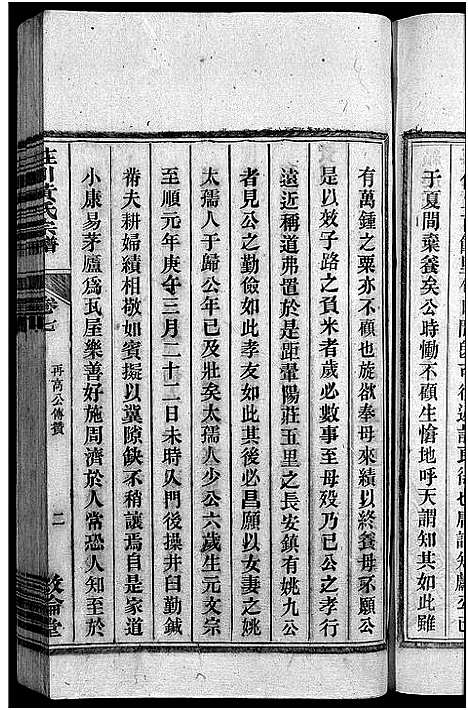 于夏間棄養矣公時慟不顧生愴地呼天謂知其如此雖
有萬鍾之粟亦不顧也旋欲奉母來績以終養母不願公
是以效子路之負米者歲必數事至母歿乃已公之孝行
遠近稱道弗置於是距鞏陽莊五里之長安鎮有姚九公
者見公之勤儉如此孝友如此其後必昌願以女妻之姚
太孺人于歸公年已及壯矣太孺人少公六歲生元文宗
至順元年庚午三月二十二日未時入門後操井臼勤鍼
黹夫耕婦績相敬如賓擬以冀隙缺不稍讓焉自是家道
小康易茅廬為瓦屋樂善好施周濟於人常恐人知至於
黃氏宗譜
卷七
再高公傳贊
二
敦倫堂